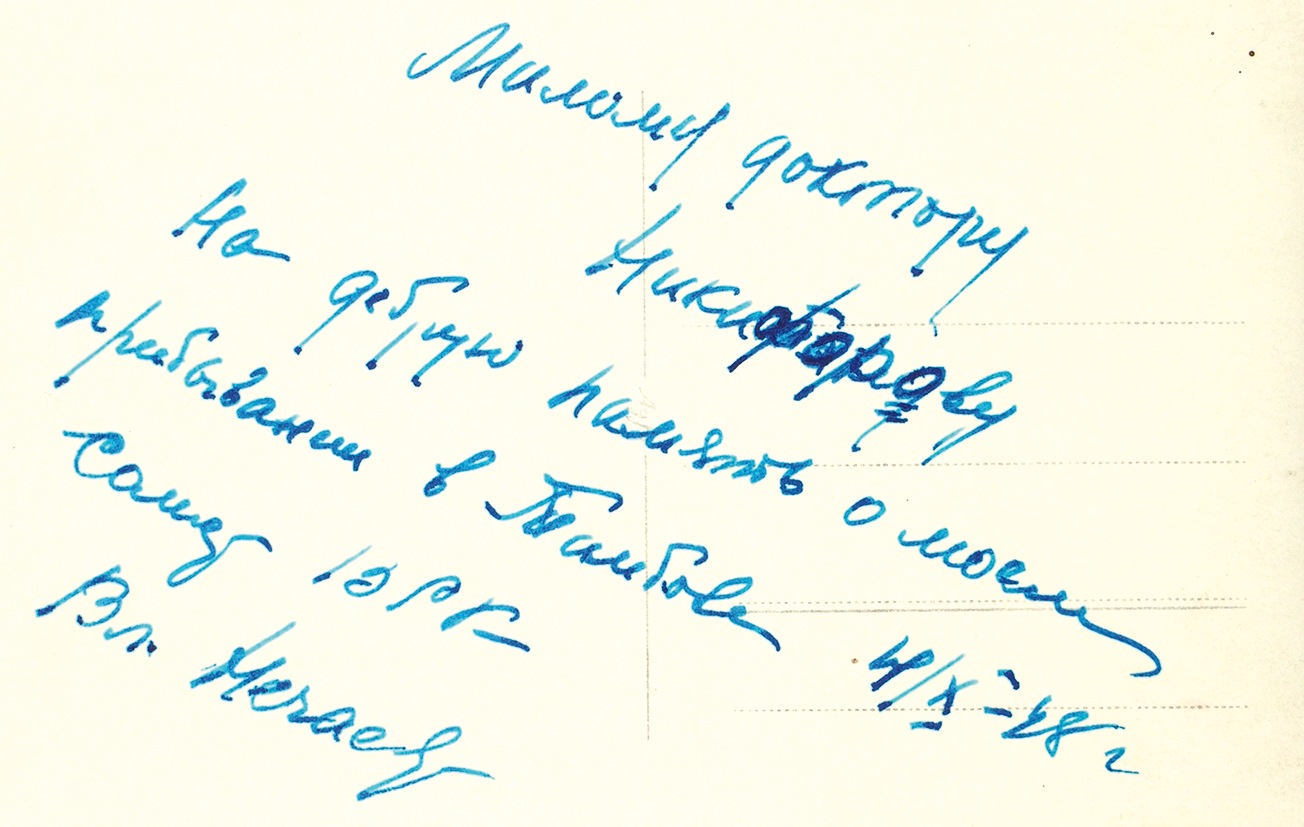 Милому доктору
Никифорову
На добрую память о моем
пребывании в Тамбове
Солист ВРК
Вл. Нечаев
4/X-48 г